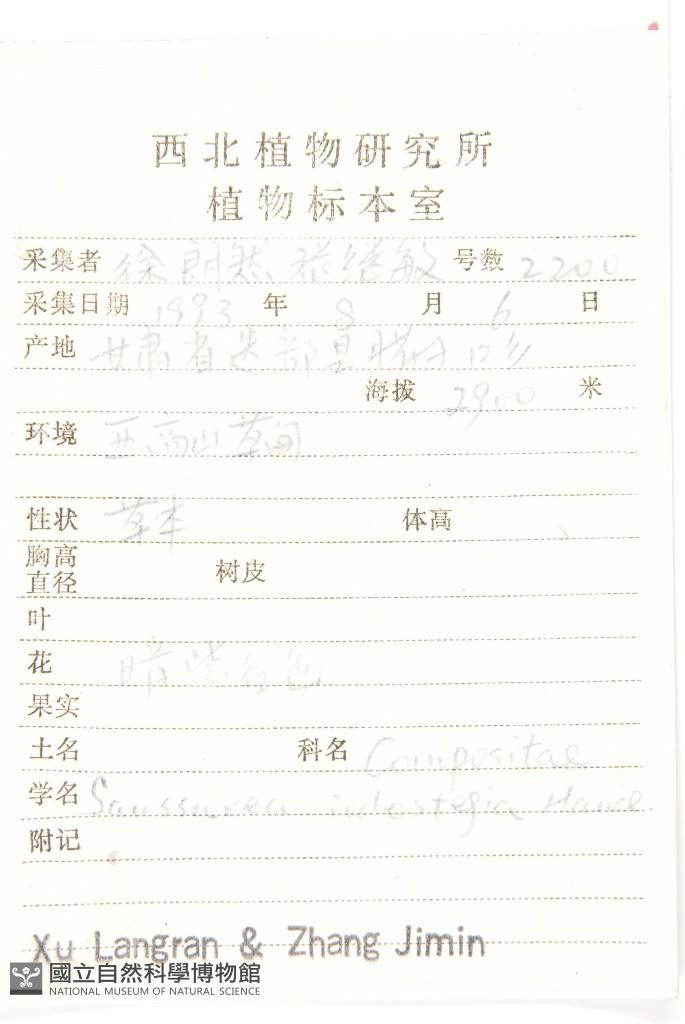 西北植物研究所
植物标本室
采集者 徐朗然 张继敏 号数 2200
采集日期 1993 年 8 月 6 日
产地 甘肃省迭部县腊子口乡
海拔 2900 米
环境 亚高山草甸
性状 草本 体高
胸高直径 树皮
叶
花 暗紫红色
果实
土名 科名 Compositae
学名 Saussurea iodostegia Hance.
附记
Xu Langran & Zhang Jimin
國立自然科學博物館
NATIONAL MUSEUM OF NATURAL SCIENCE